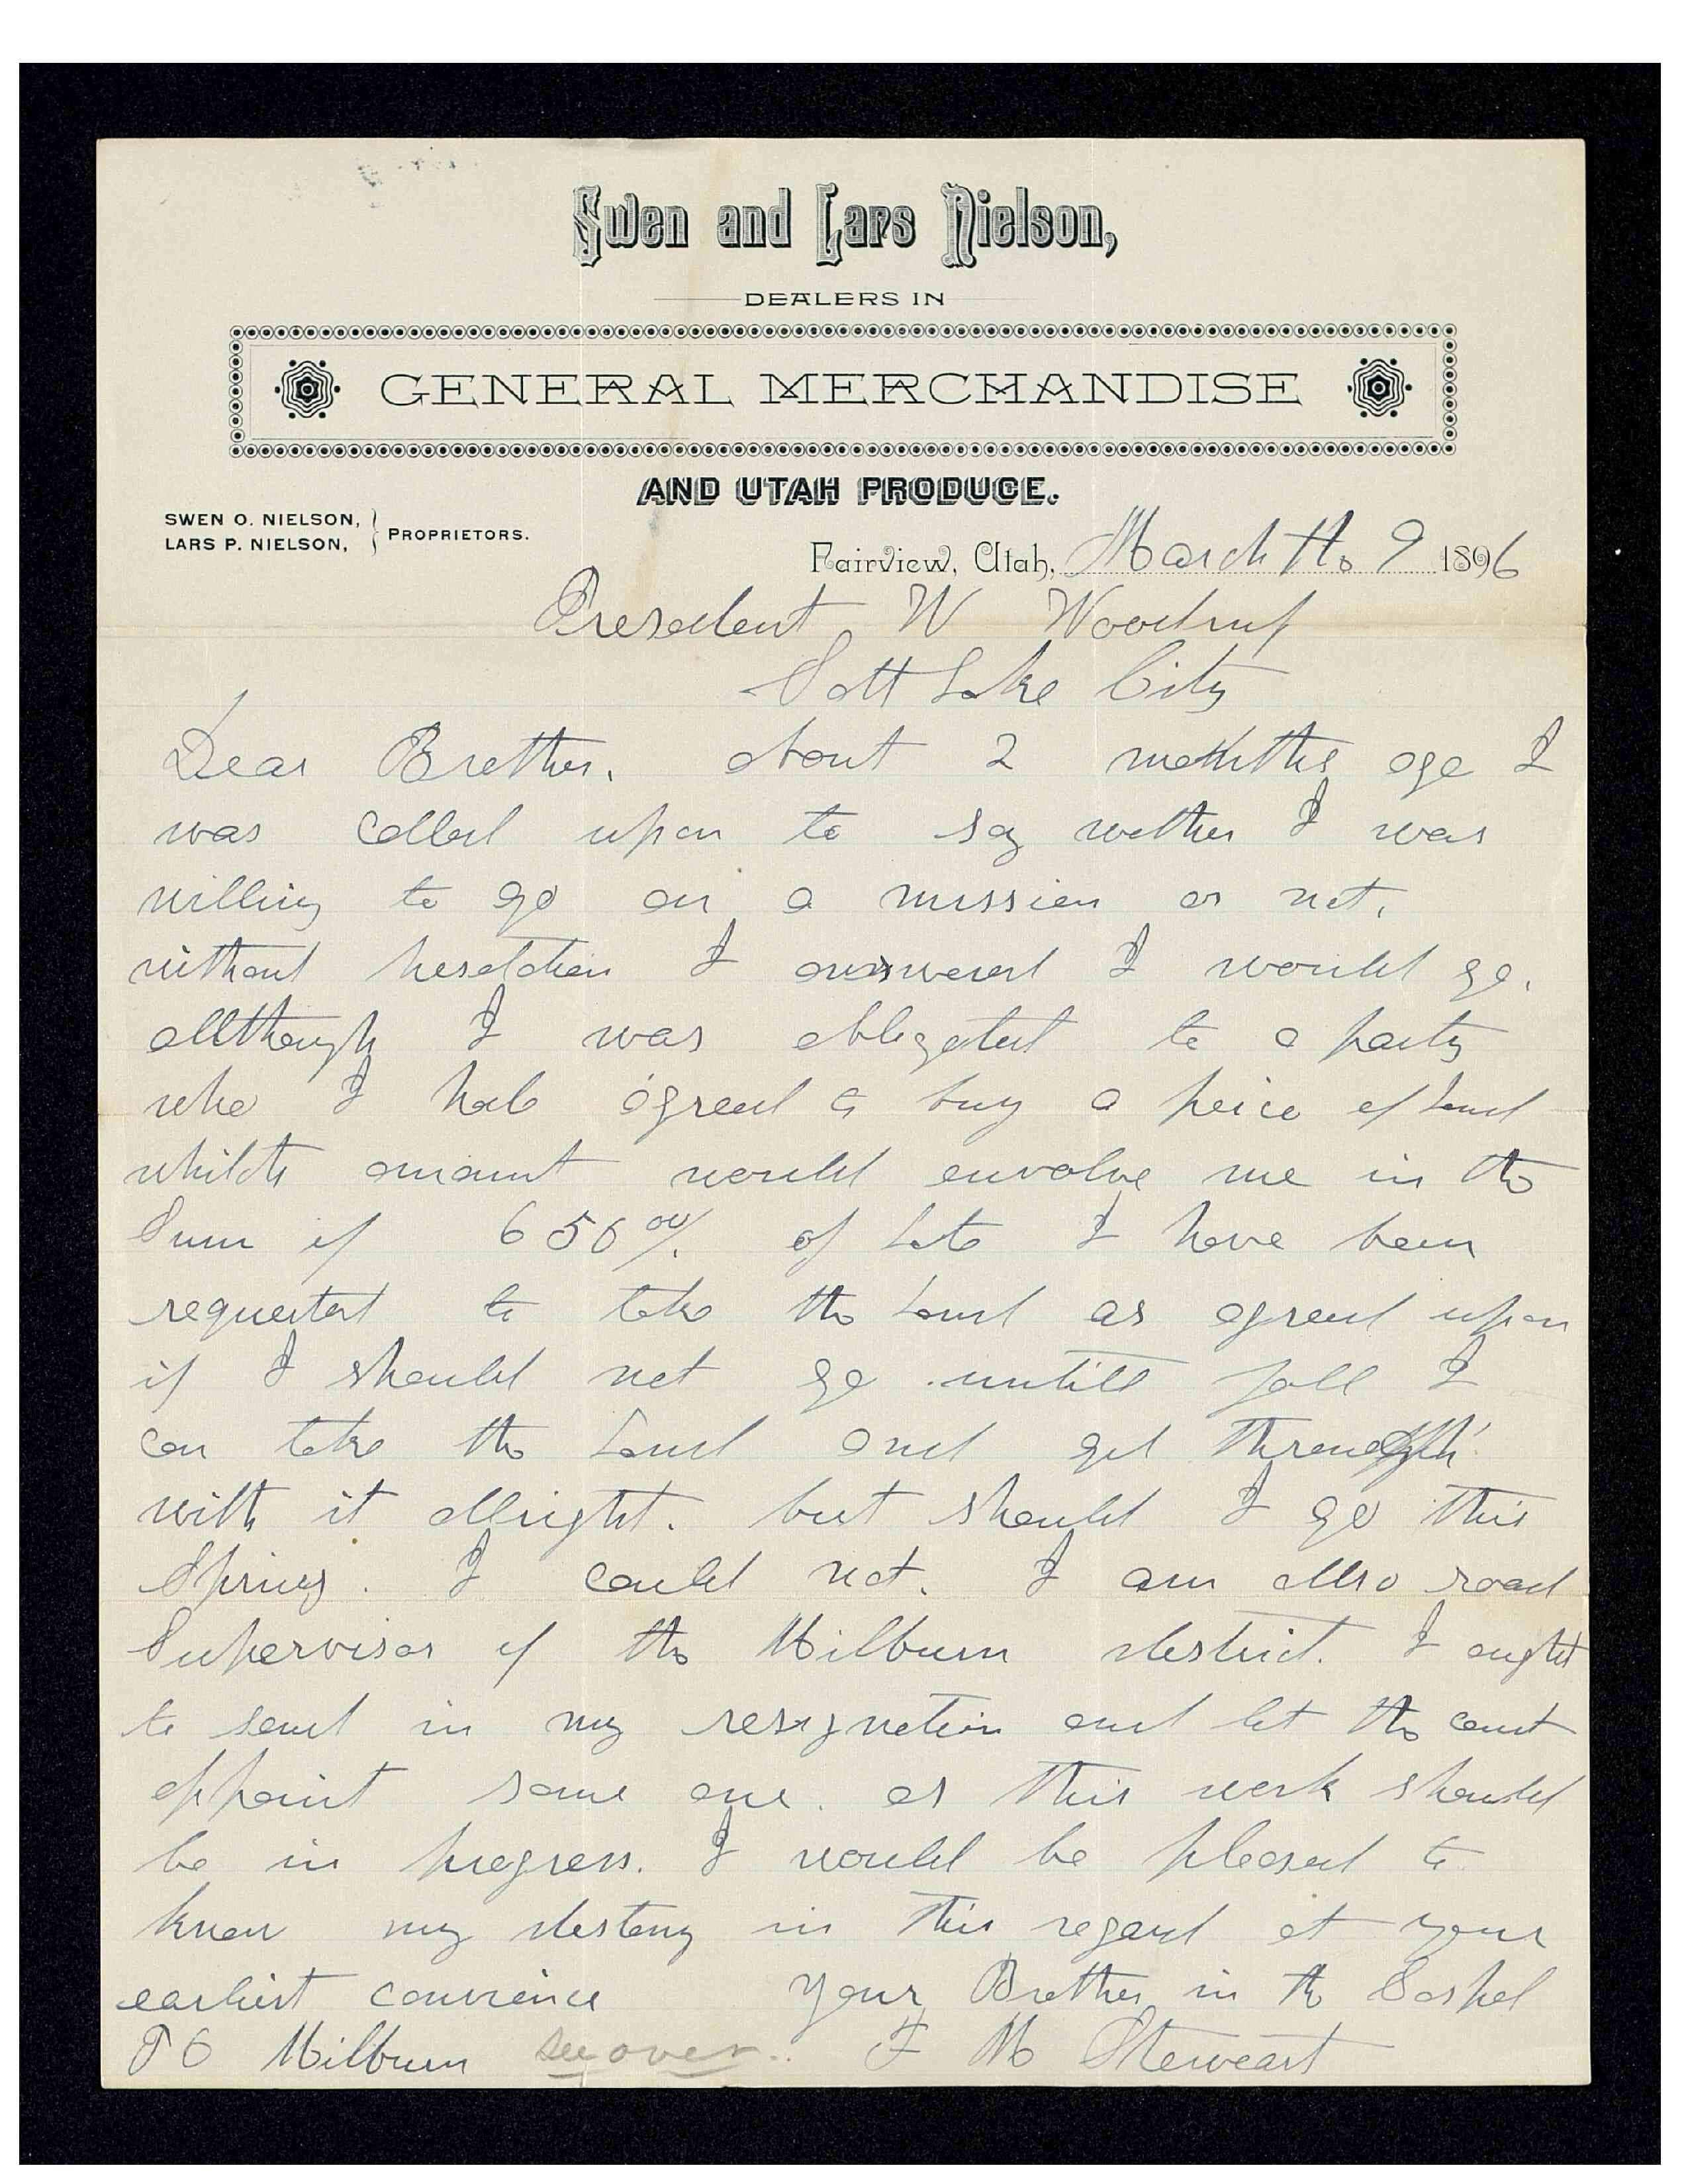 Swen and Lars Nielson,
DEALERS IN
GENERAL MERCHANDISE
AND UTAH PRODUCE.
SWEN O. NIELSON,
LARS P. NIELSON,
PROPRIETORS.
Fairview, Utah, March the 9 1896
Presedent W Woodruf
Salt Lake City
Dear Brother. about 2 monthths ago I
was called upon to say wether I was
willing to go on a mission or not.
without hesetation I answered I would go.
allthough I was obligated to a party
who I hab agreed to buy a peice of land
whitch amount would envolve me in the
Sum of 650 00/. of late I have been
requested to take the land as agreed upon
if I should not go untill fall I
can take the land and get through
with it allright. but should I go this
Spring. I could not. I am allso road
Supervisor of the Milburn destrict. I ought
to send in my resignation and let the court
appoint some one. as this work should
be in progress. I would be pleased to
know my desteny in this regard at your
earliest convience your Brother in the Gospel
P O Milburn see over.. F M Steweart